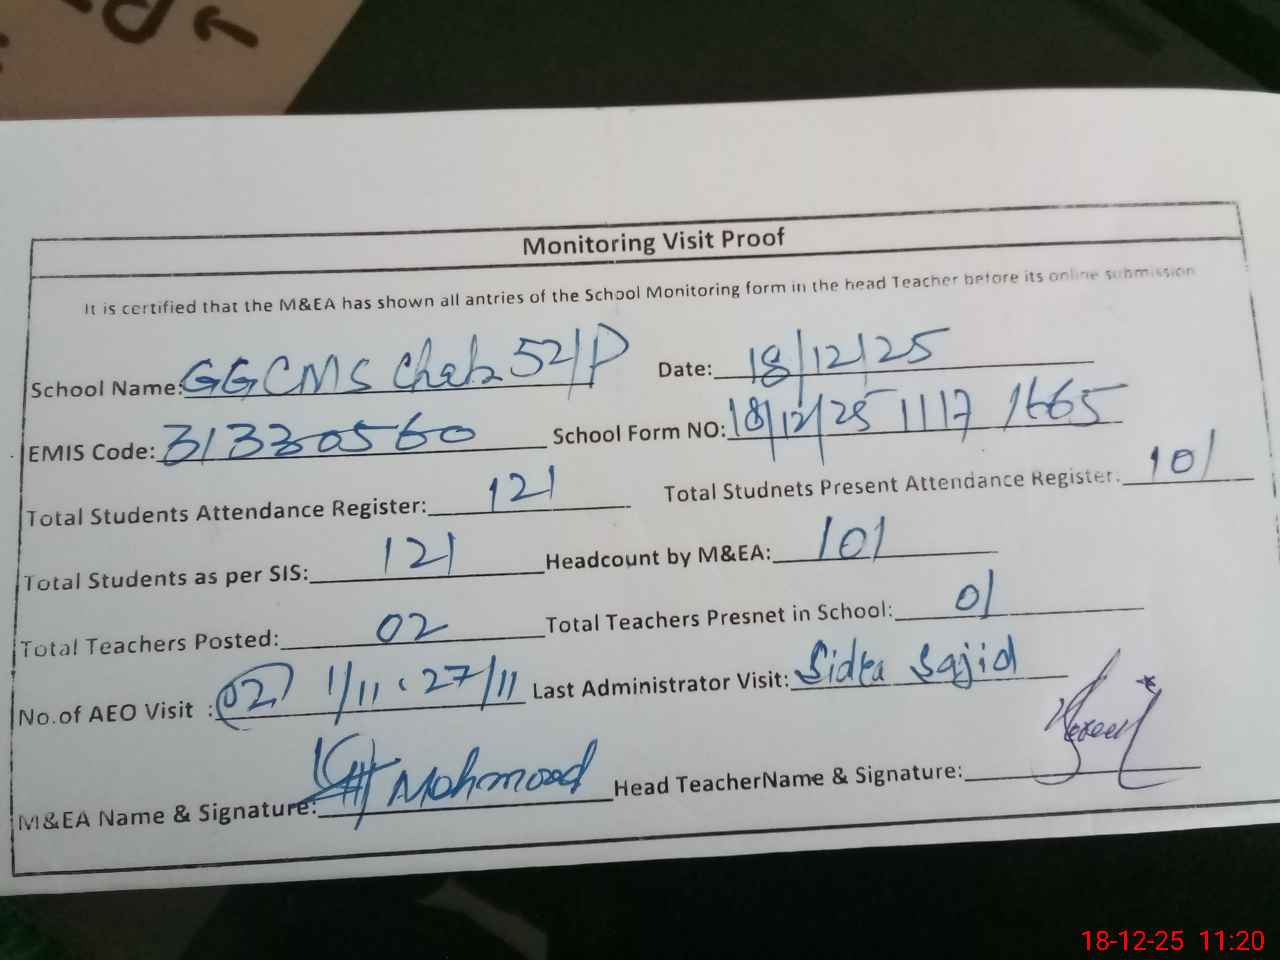 Monitoring Visit Proof
It is certified that the M&EA has shown all antries of the School Monitoring form in the head Teacher before its online submission
School Name: GGCMS Chak 52/P Date: 18/12/25
EMIS Code: 31330560 School Form NO: 18/12/25 1117 1665
Total Students Attendance Register: 121 Total Studnets Present Attendance Register: 101
Total Students as per SIS: 121 Headcount by M&EA: 101
Total Teachers Posted: 02 Total Teachers Presnet in School: 01
No.of AEO Visit : 02 1/11 , 27/11 Last Administrator Visit: Sidra Sajid
M&EA Name & Signature: Mahmood Head TeacherName & Signature:
18-12-25 11:20